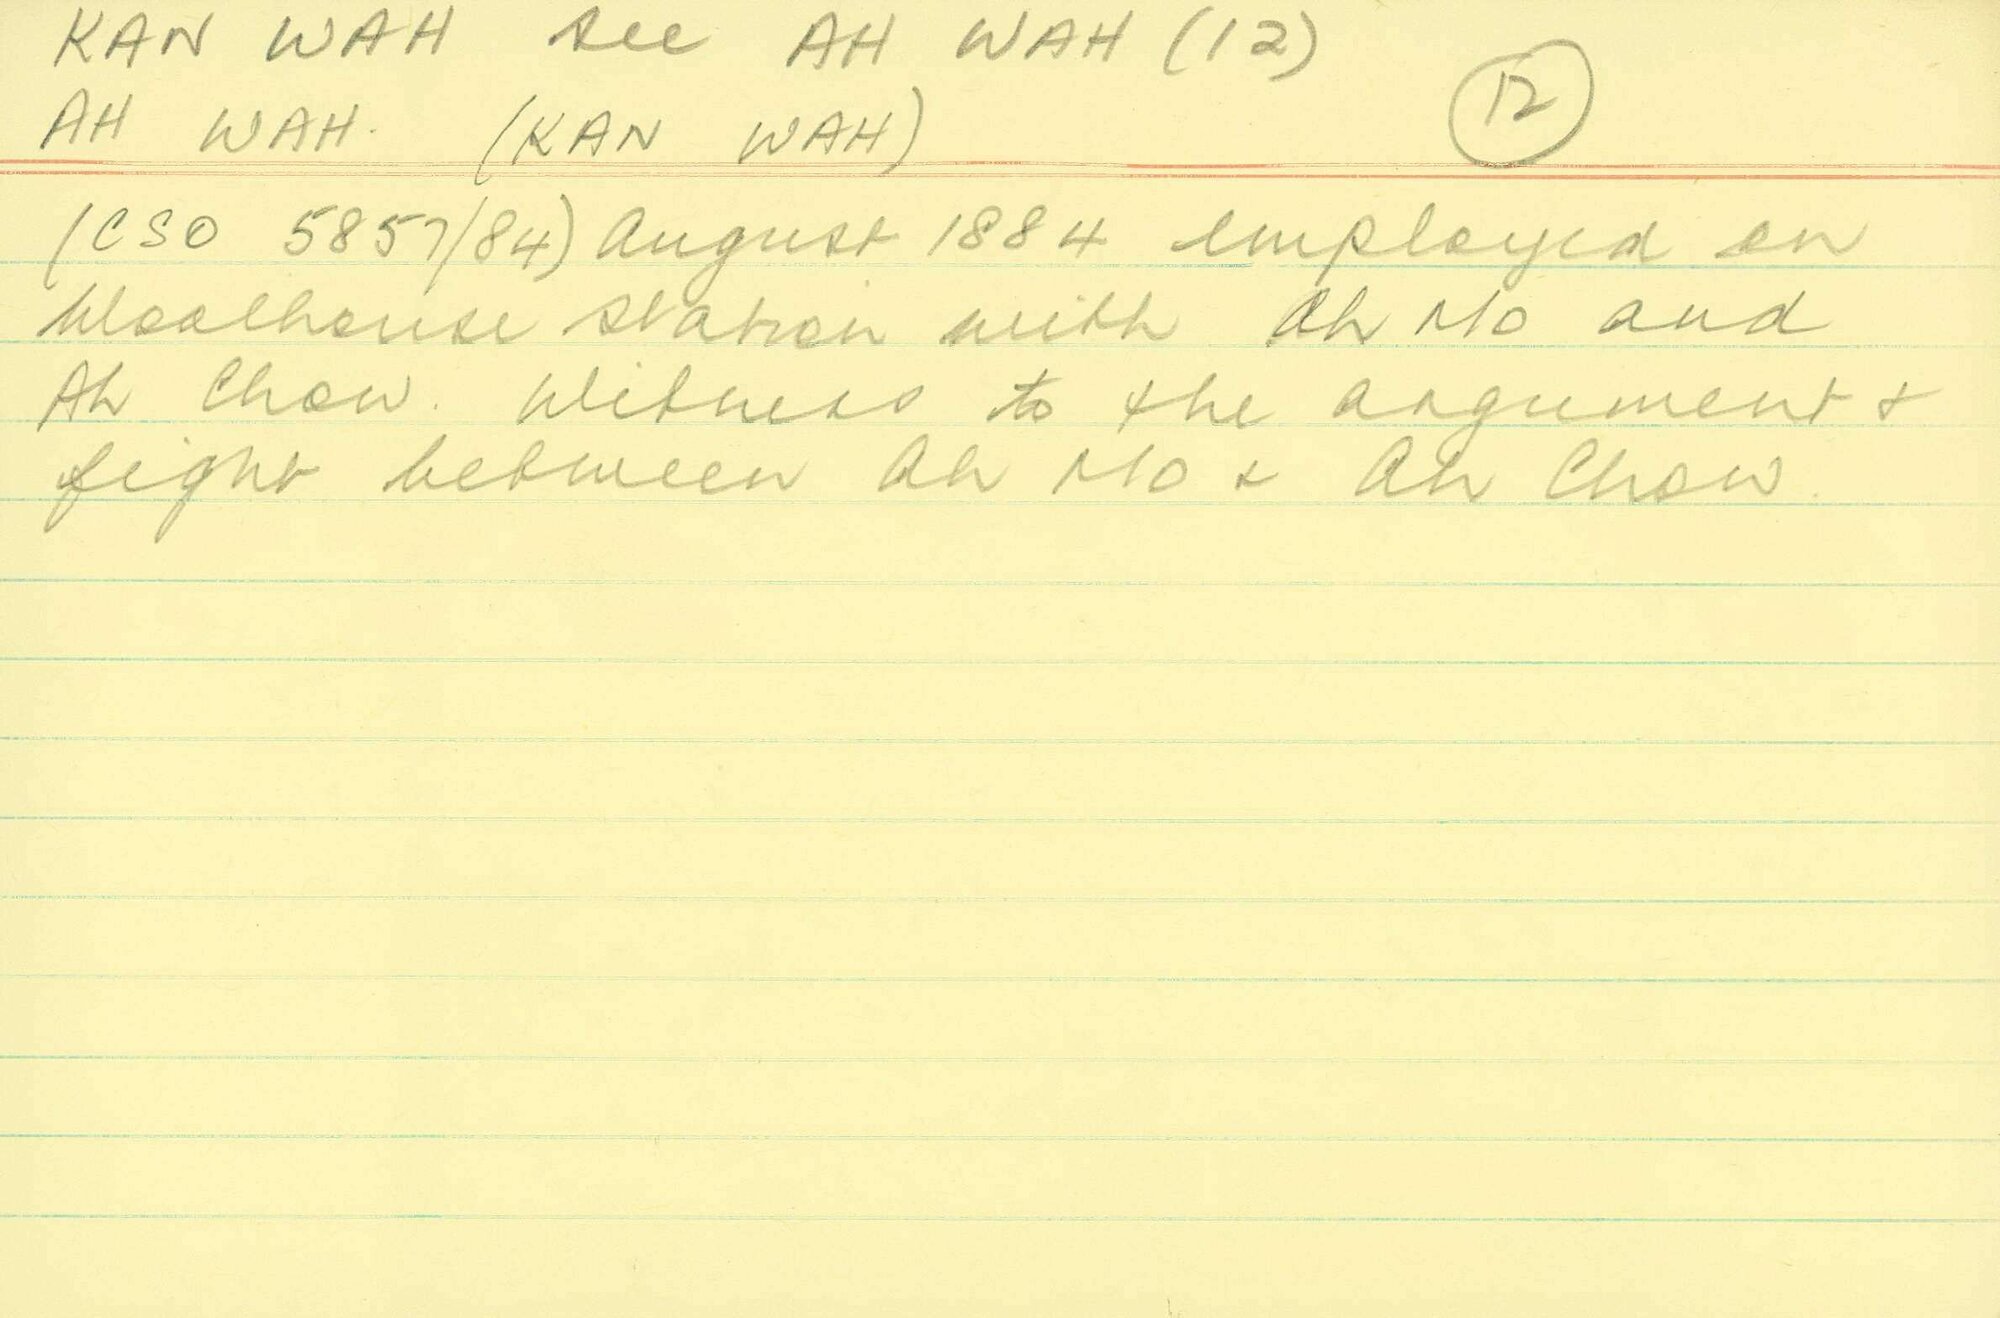 KAN WAH see AH WAH (12)
AH WAH. (KAN WAH) 12
(CSO 5857/84) August 1884 employed on
Woolhouse station with Ah Mo and
Ah Chow. Witness to the argument &
fight between Ah Mo & Ah Chow.